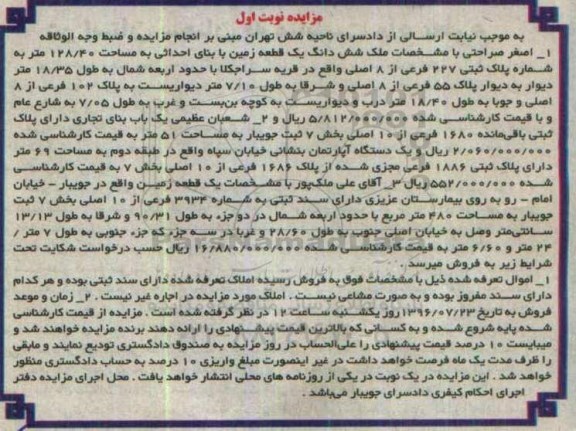 مزایده نوبت اول
به موجب نیابت ارسالی از دادسرای ناحیه شش تهران مبنی بر انجام مزایده و ضبط وجه الوثاقه
1_ اصغر صراحتی با مشخصات ملک شش دانگ یک قطعه زمین با بنای احداثی به مساحت 128/40 متر به
شماره پلاک ثبتی 227 فرعی از 8 اصلی واقع در قریه سراجکلا با حدود اربعه شمال به طول 18/35 متر
دیوار به دیوار پلاک 55 فرعی از 8 اصلی و شرقا به طول 7/10 متر دیواریست به پلاک 102 فرعی از 8
اصلی و جوبا به طول 18/40 متر درب و دیواریست به کوچه بن‌بست و غرب به طول 7/05 به شارع عام
و با قیمت کارشناسی شده 5/812/000/000 ریال و 2_ شعبان عظیمی یک باب بنای تجاری دارای پلاک
ثبتی باقی‌مانده 1680 فرعی از 10 اصلی بخش 7 ثبت جویبار به مساحت 51 متر به قیمت کارشناسی شده
2/060/000/000 ریال و یک دستگاه آپارتمان بنشانی خیابان سپاه واقع در طبقه دوم به مساحت 69 متر
دارای پلاک ثبتی 1886 فرعی مجزی شده از پلاک 1686 فرعی از 10 اصلی بخش 7 به قیمت کارشناسی
شده 552/000/000 ریال 3_ آقای علی ملک‌پور با مشخصات یک قطعه زمین واقع در جویبار - خیابان
امام - رو به روی بیمارستان عزیزی دارای سند ثبتی به شماره 3934 فرعی از 10 اصلی بخش 7 ثبت
جویبار به مساحت 480 متر مربع با حدود اربعه شمال در دو جزء به طول 90/31 و شرقا به طول 13/13
سانتی‌متر وصل به خیابان اصلی جنوب به طول 28/60 و غربا در سه جزء که جزء جنوبی به طول 7 متر /
24 متر و 6/60 متر به قیمت کارشناسی شده 16/880/000/000 ریال حسب درخواست شکایت تحت
شرایط زیر به فروش میرسد .
1_ اموال تعرفه شده ذیل با مشخصات فوق به فروش رسیده املاک تعرفه شده دارای سند ثبتی بوده و هر کدام
دارای سند مفروز بوده و به صورت مشاعی نیست . املاک مورد مزایده در اجاره غیر نیست . 2_ زمان و موعد
فروش به تاریخ 1396/07/23 روز یکشنبه ساعت 12 در نظر گرفته شده است . مزایده از قیمت کارشناسی
شده پایه شروع شده و به کسانی که بالاترین قیمت پیشنهادی را ارائه دهند برنده مزایده خواهند شد و
میبایست 10 درصد قیمت پیشنهادی را علی‌الحساب در روز مزایده به صندوق دادگستری تودیع نمایند و مابقی
را ظرف مدت یک ماه فرصت خواهد داشت در غیر اینصورت مبلغ واریزی 10 درصد به حساب دادگستری منظور
خواهد شد . این مزایده در یک نوبت در یکی از روزنامه های محلی انتشار خواهد یافت . محل اجرای مزایده دفتر
اجرای احکام کیفری دادسرای جویبار می‌باشد .